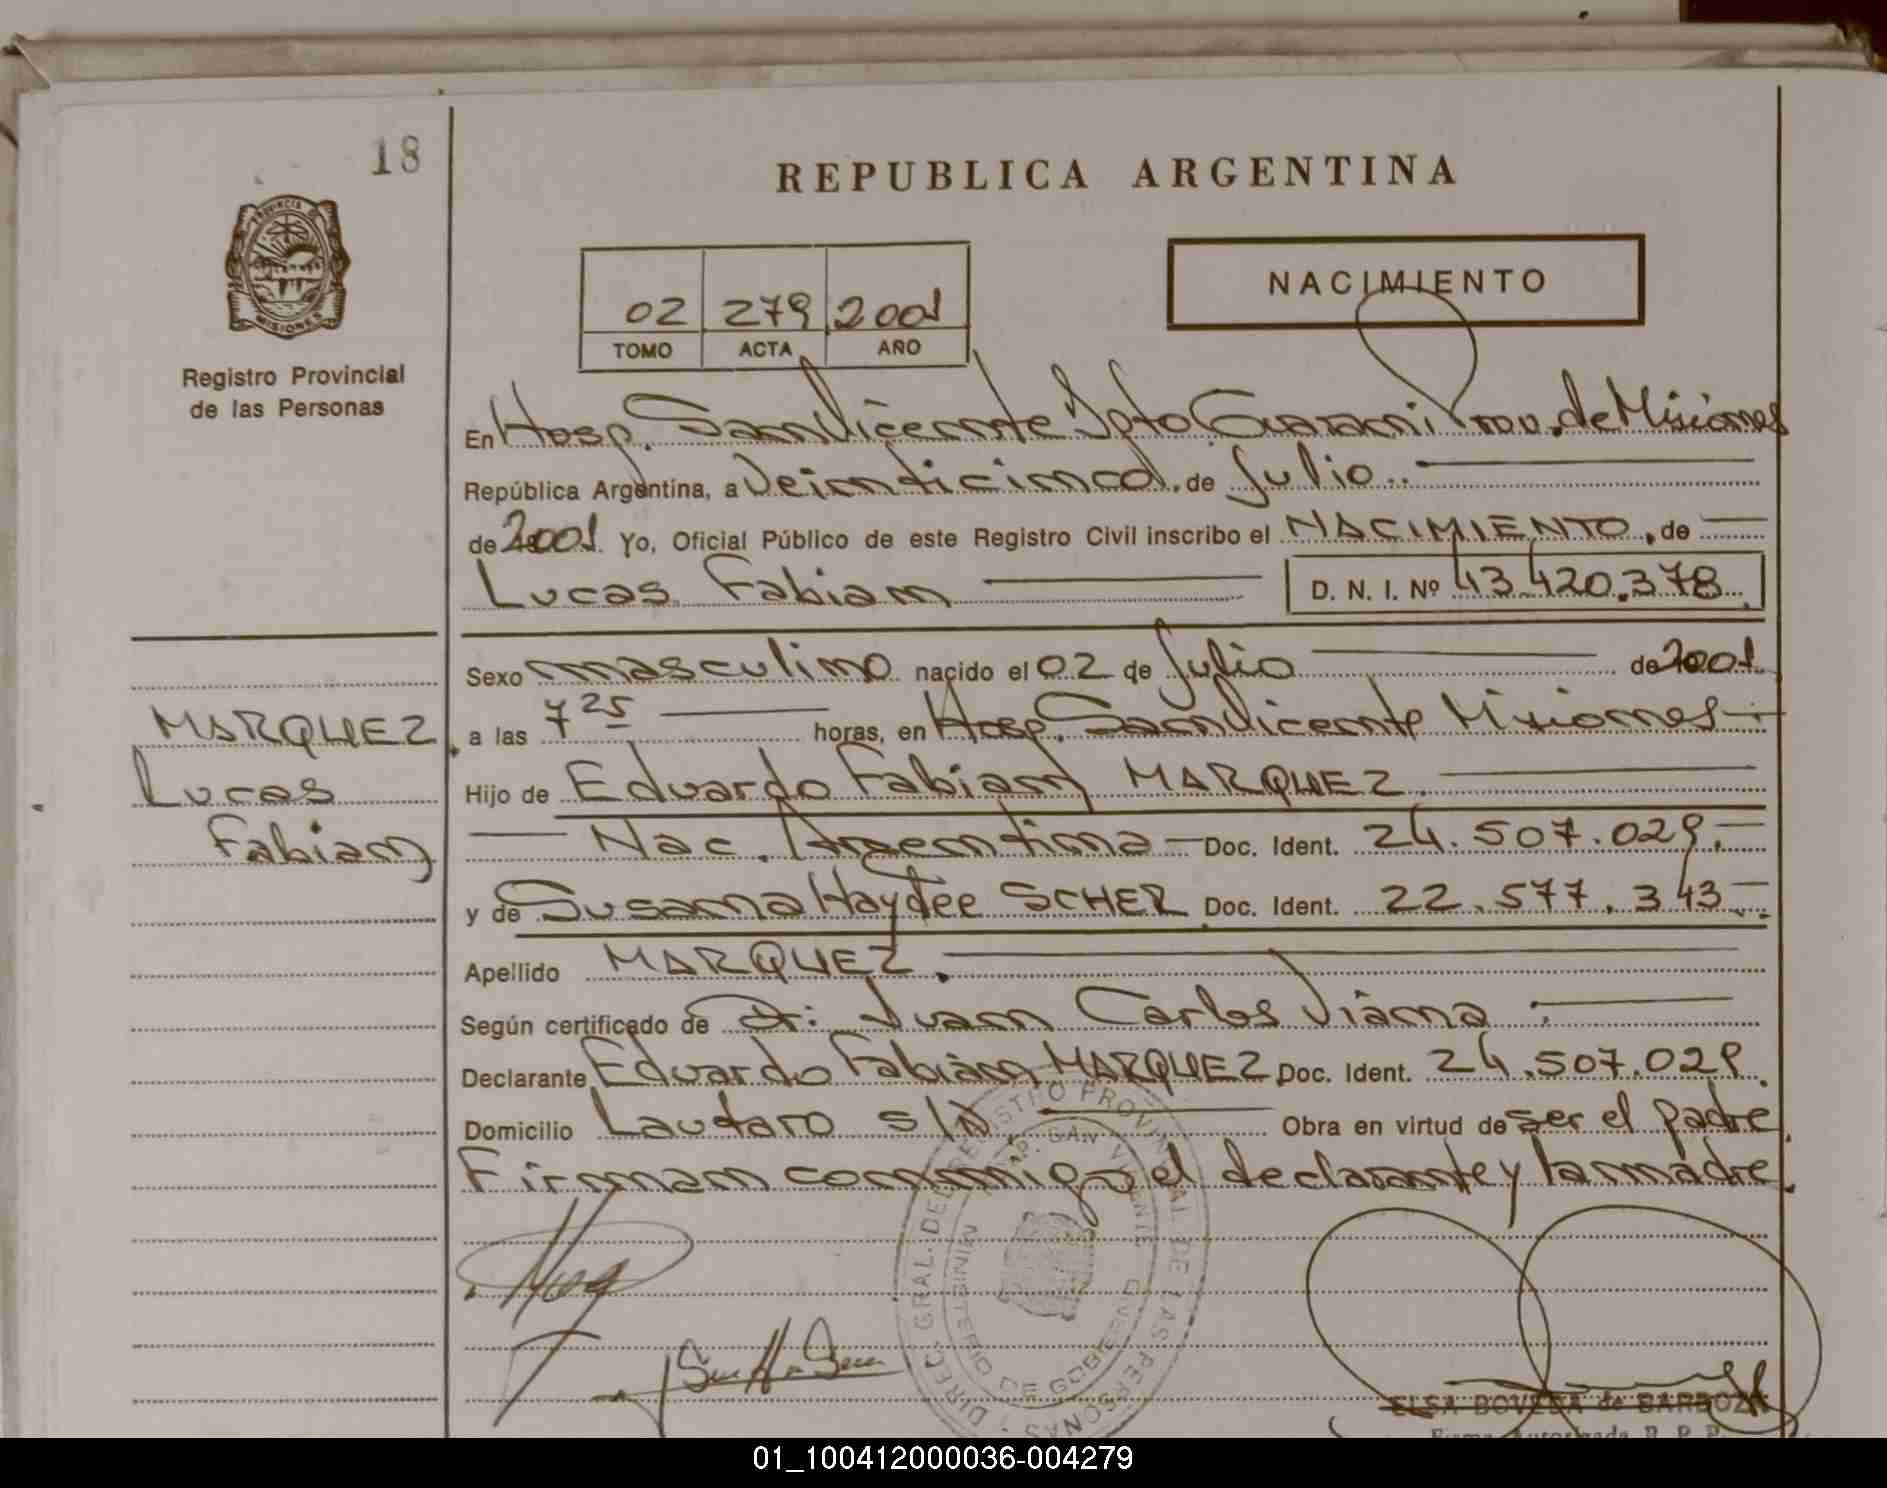 18
REPUBLICA ARGENTINA
PROVINCIA DE
MISIONES
NACIMIENTO
02 279 2001
TOMO ACTA AÑO
Registro Provincial
de las Personas
En Hosp. San Vicente Dpto Guarani Prov. de Misiones
República Argentina, a Veinticinco de Julio
de 2001. Yo, Oficial Público de este Registro Civil inscribo el NACIMIENTO, de
Lucas Fabian D. N. I. Nº 43.420.378
Sexo masculino nacido el 02 de Julio de 2001
a las 7 25 horas, en Hosp. San Vicente Misiones
MARQUEZ
Lucas
Fabian
Hijo de Eduardo Fabian MARQUEZ
Nac. Argentina Doc. Ident. 24.507.029
y de Susana Haydee SCHER Doc. Ident. 22.577.343
Apellido MARQUEZ.
Según certificado de Dr: Juan Carlos Viana
Declarante Eduardo Fabián MARQUEZ Doc. Ident. 24.507.029
Domicilio Lautaro s/n Obra en virtud de ser el padre
Firman conmigo el declarante y la madre.
DIREC. GRAL. DEL REGISTRO PROVINCIAL DE LAS PERSONAS
MINISTERIO DE GOBIERNO
SAN VICENTE
ELSA BOVEDA de BARBOZA
Firma Autorizada R. P. P.
01_100412000036-004279